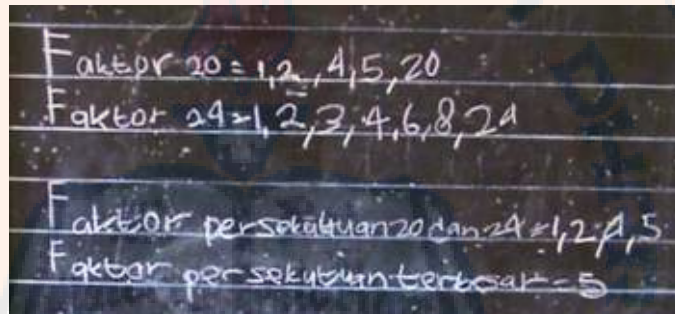 Faktor 20 = 1,2,4,5,20
Faktor 24 = 1,2,3,4,6,8,24
Faktor persekutuan 20 dan 24 = 1,2,4,5
Faktor persekutuan terbesar = 5